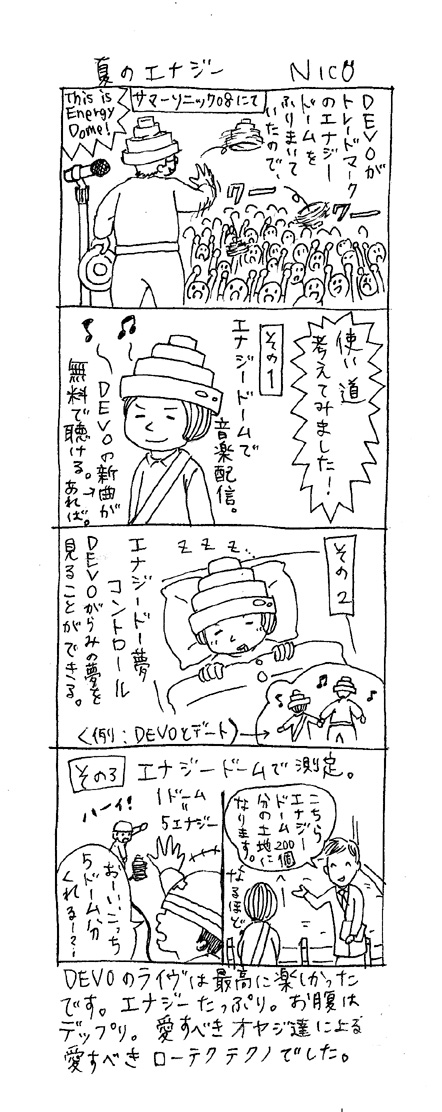 夏のエナジー
NICO
DEVOが
トレードマーク
のエナジー
ドームを
ふりまいて
いたので、
サマーソニック08にて
This is
Energy
Dome!
ワー
ワー
使い道
考えてみました!
その1
エナジードームで
音楽配信。
DEVOの新曲が
無料で聴ける。→あれば。
その2
ZZZ…
エナジードー夢
コントロール
DEVOがらみの夢を
見ることができる。
(例:DEVOとデート)→
その3
エナジードームで測定。
1ドーム
=
5エナジー
ハーイ!
おーい、こっち
5ドーム分
くれる〜?
こちら
エナジー
ドーム200個
分の土地に
なります。
なるほど
DEVOのライヴは最高に楽しかった
です。エナジーたっぷり。お腹は
デップリ。愛すべきオヤジ達による
愛すべきローテクテクノでした。